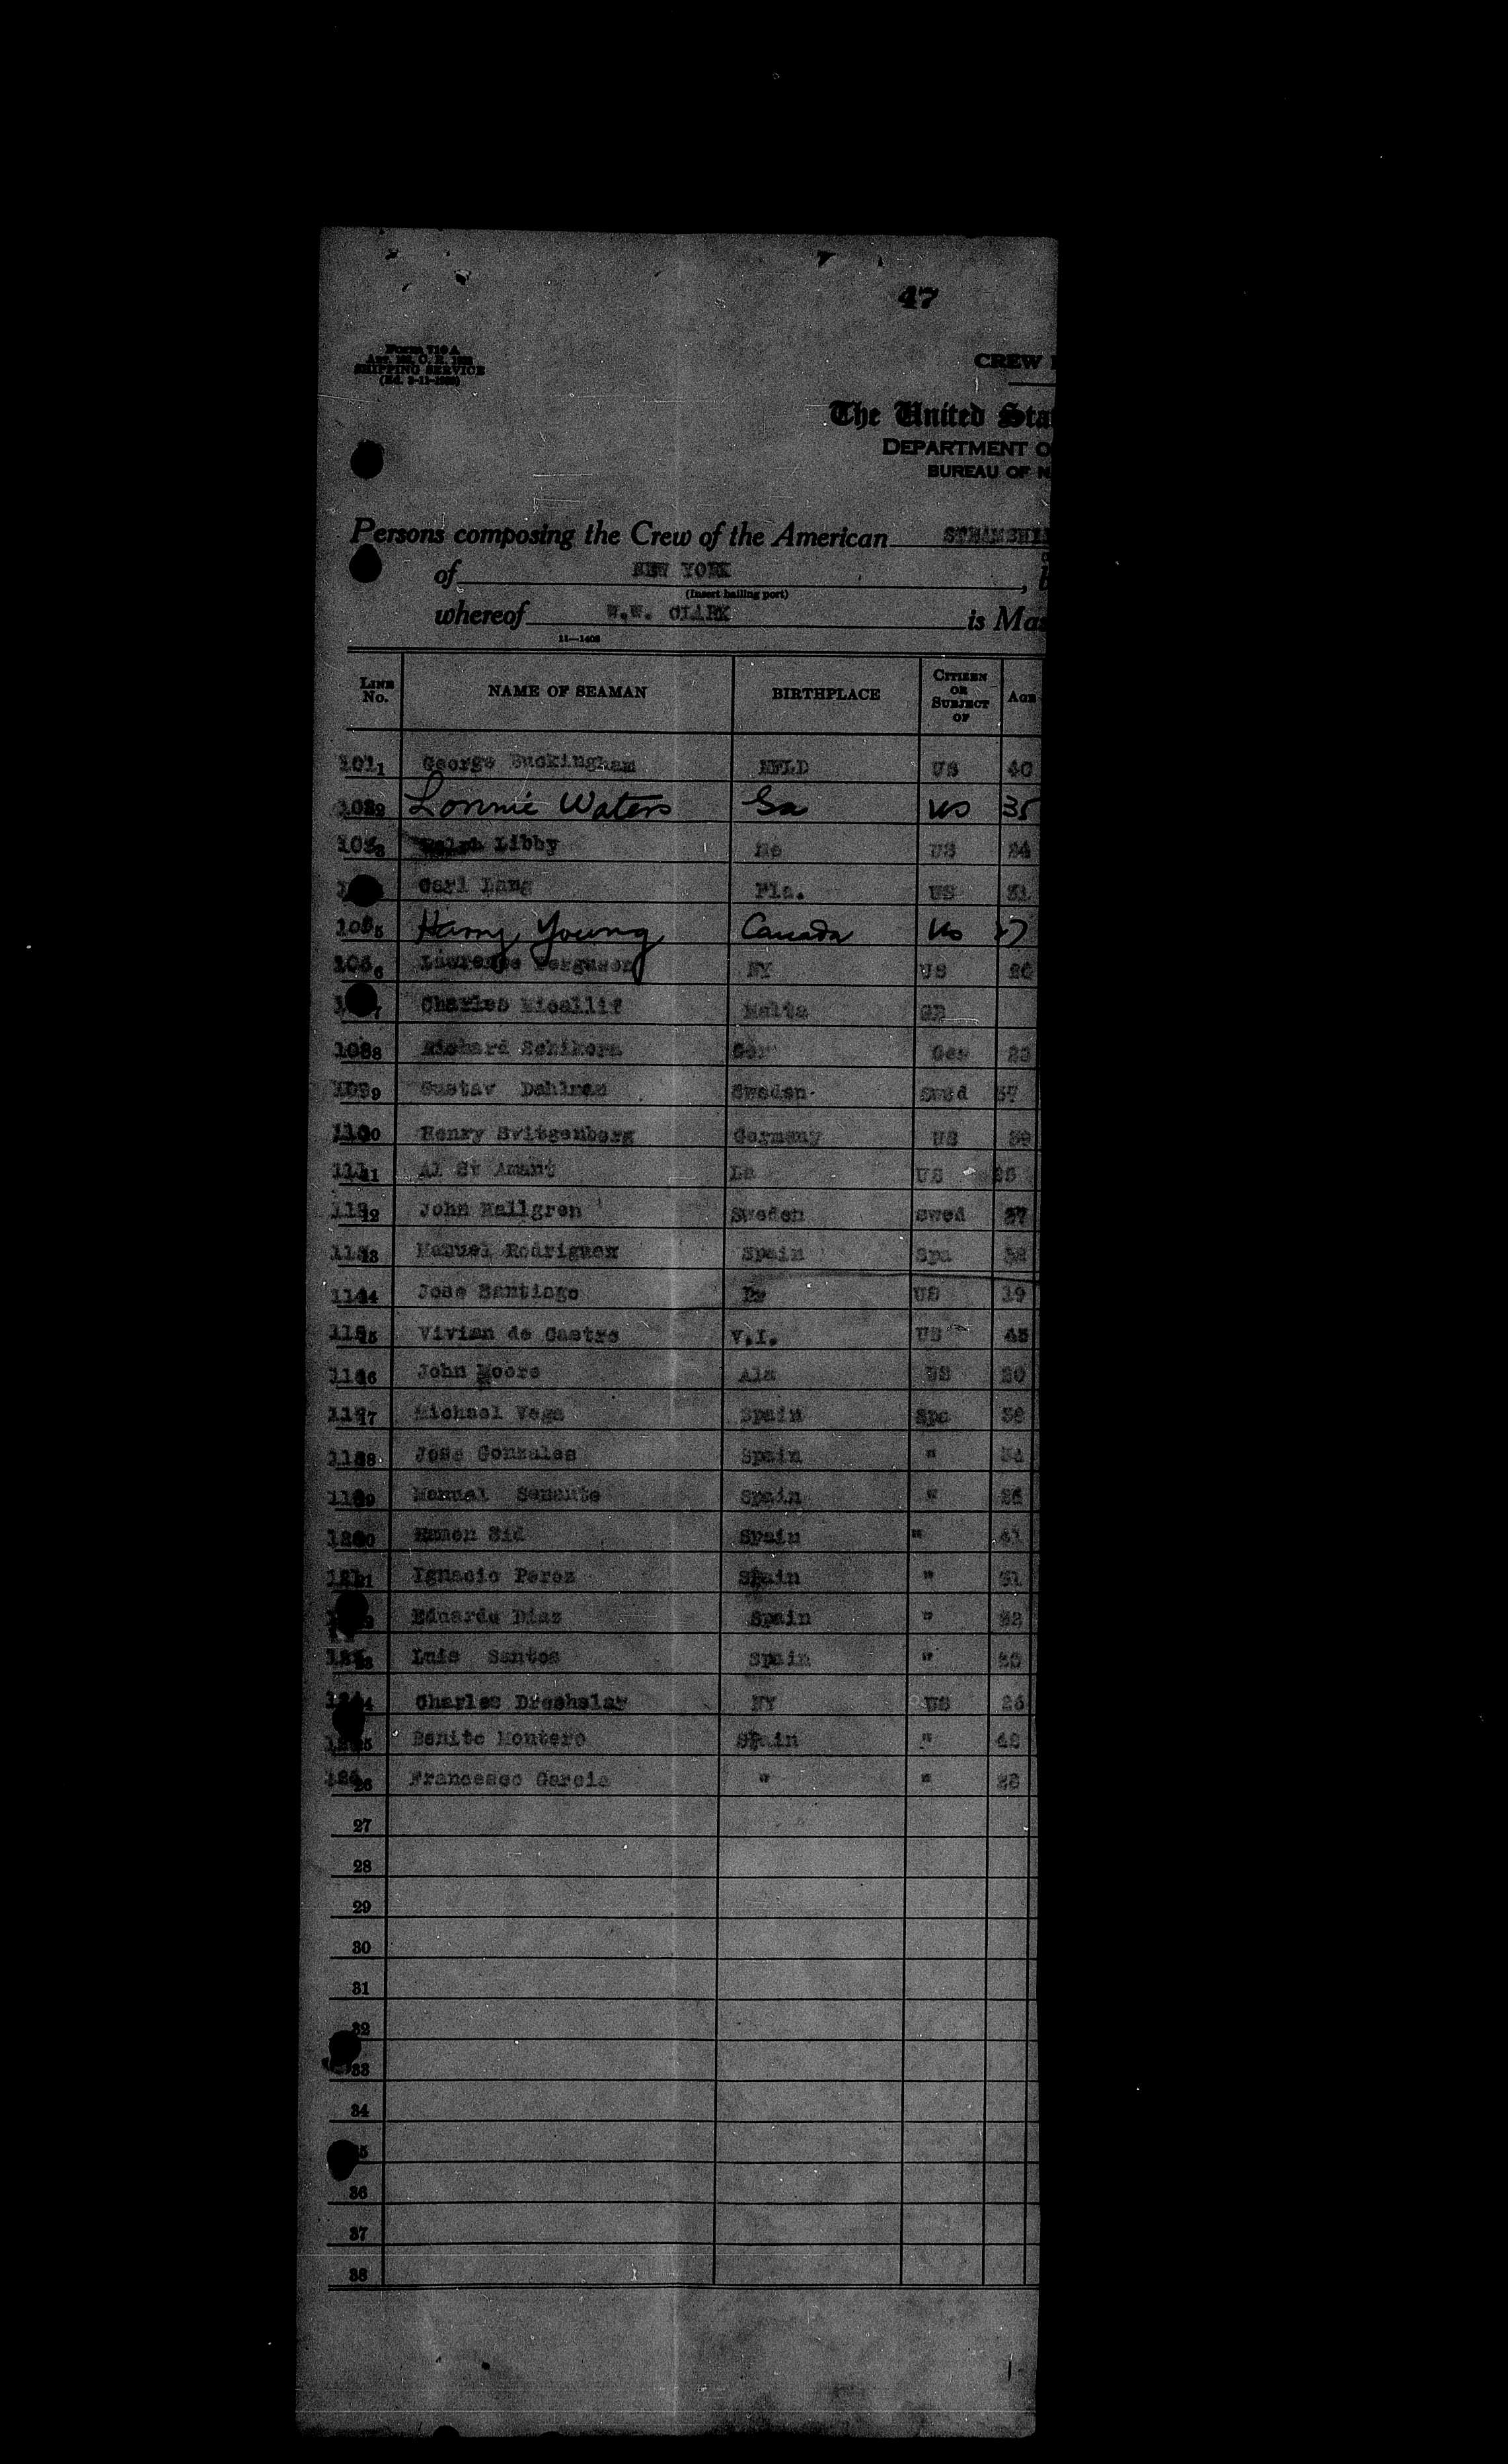 47
Form 710 A
SHIPPING SERVICE
CREW
The United Sta
DEPARTMENT O
BUREAU OF N
Persons composing the Crew of the American STEAMSHI
of NEW YORK
(Insert hailing port)
whereof W.W. CLARK is Mas
11—1403
LINE No. NAME OF SEAMAN BIRTHPLACE CITIZEN OR SUBJECT OF AGE
101 1 George Buckingham NFLD US 40
102 2 Lonnie Waters Ga US 35
103 3 Ralph Libby Me US 24
Carl Lang Fla. US 31
105 5 Harry Young Canada US 27
106 6 Lawrence Ferguson NY US
7 Charles Micallif Malta GB
108 8 Richard Schikora Ger Ger
109 9 Gustav Dahlren Sweden Swed 37
110 10 Henry Svitgenberg Germany US 39
111 11 Al St Amant La US
112 12 John Hallgren Sweden Swed 37
113 13 Manuel Rodriguez Spain Spa 38
114 14 Jose Santiago US 19
115 15 Vivian de Castro V.I. US 45
116 16 John Moore Ala US
117 17 Michael Vega Spain Spa
118 18 Jose Gonzales Spain " 34
119 19 Manuel Spain "
120 20 Ramon Sid Spain " 41
121 21 Ignacio Perez Spain " 31
Eduardo Diaz Spain "
23 Luis Santos Spain "
124 24 Charles Dreshslar NY US 26
25 Benito Montero Spain "
126 26 Francesco Garcia " " 28
27
28
29
30
31
32
33
34
35
36
37
38